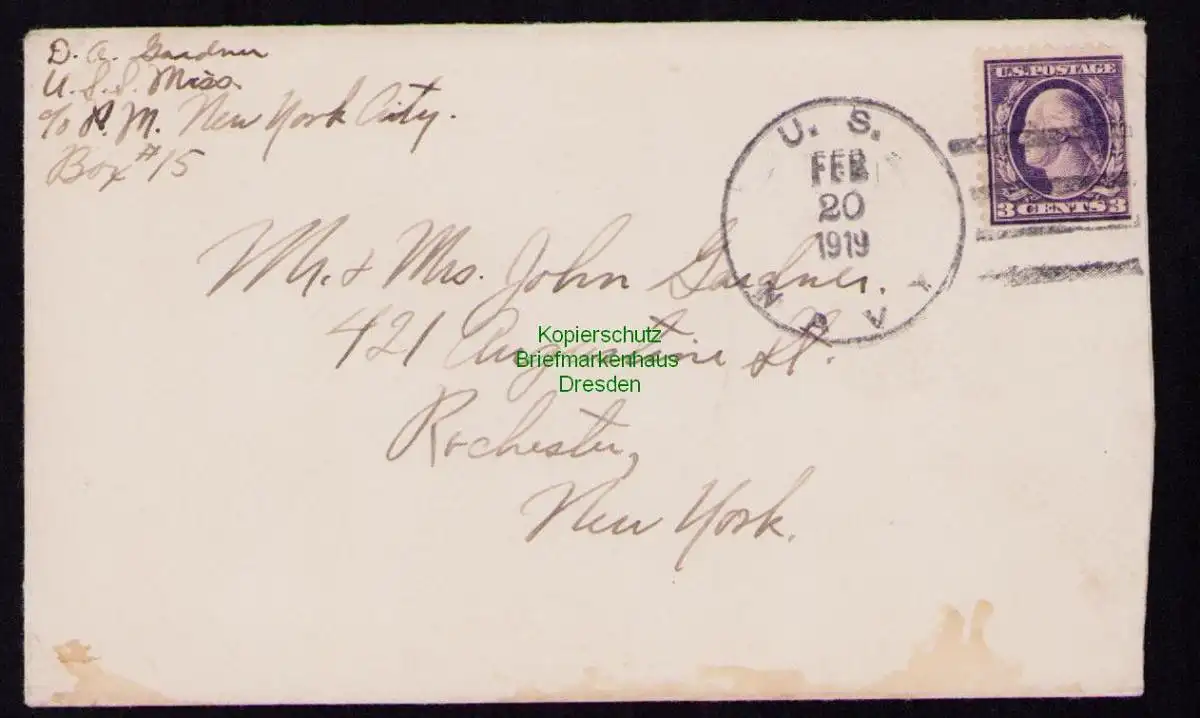 D. A. Gardner
U. S. S. Miss.
c/o P. M. New York City.
Box #15
U.S. POSTAGE
3 CENTS 3
U. S.
FEB
20
1919
NAVY
Mr. & Mrs. John Gardner.
421 Augustine St.
Rochester,
New York.
Kopierschutz
Briefmarkenhaus
Dresden